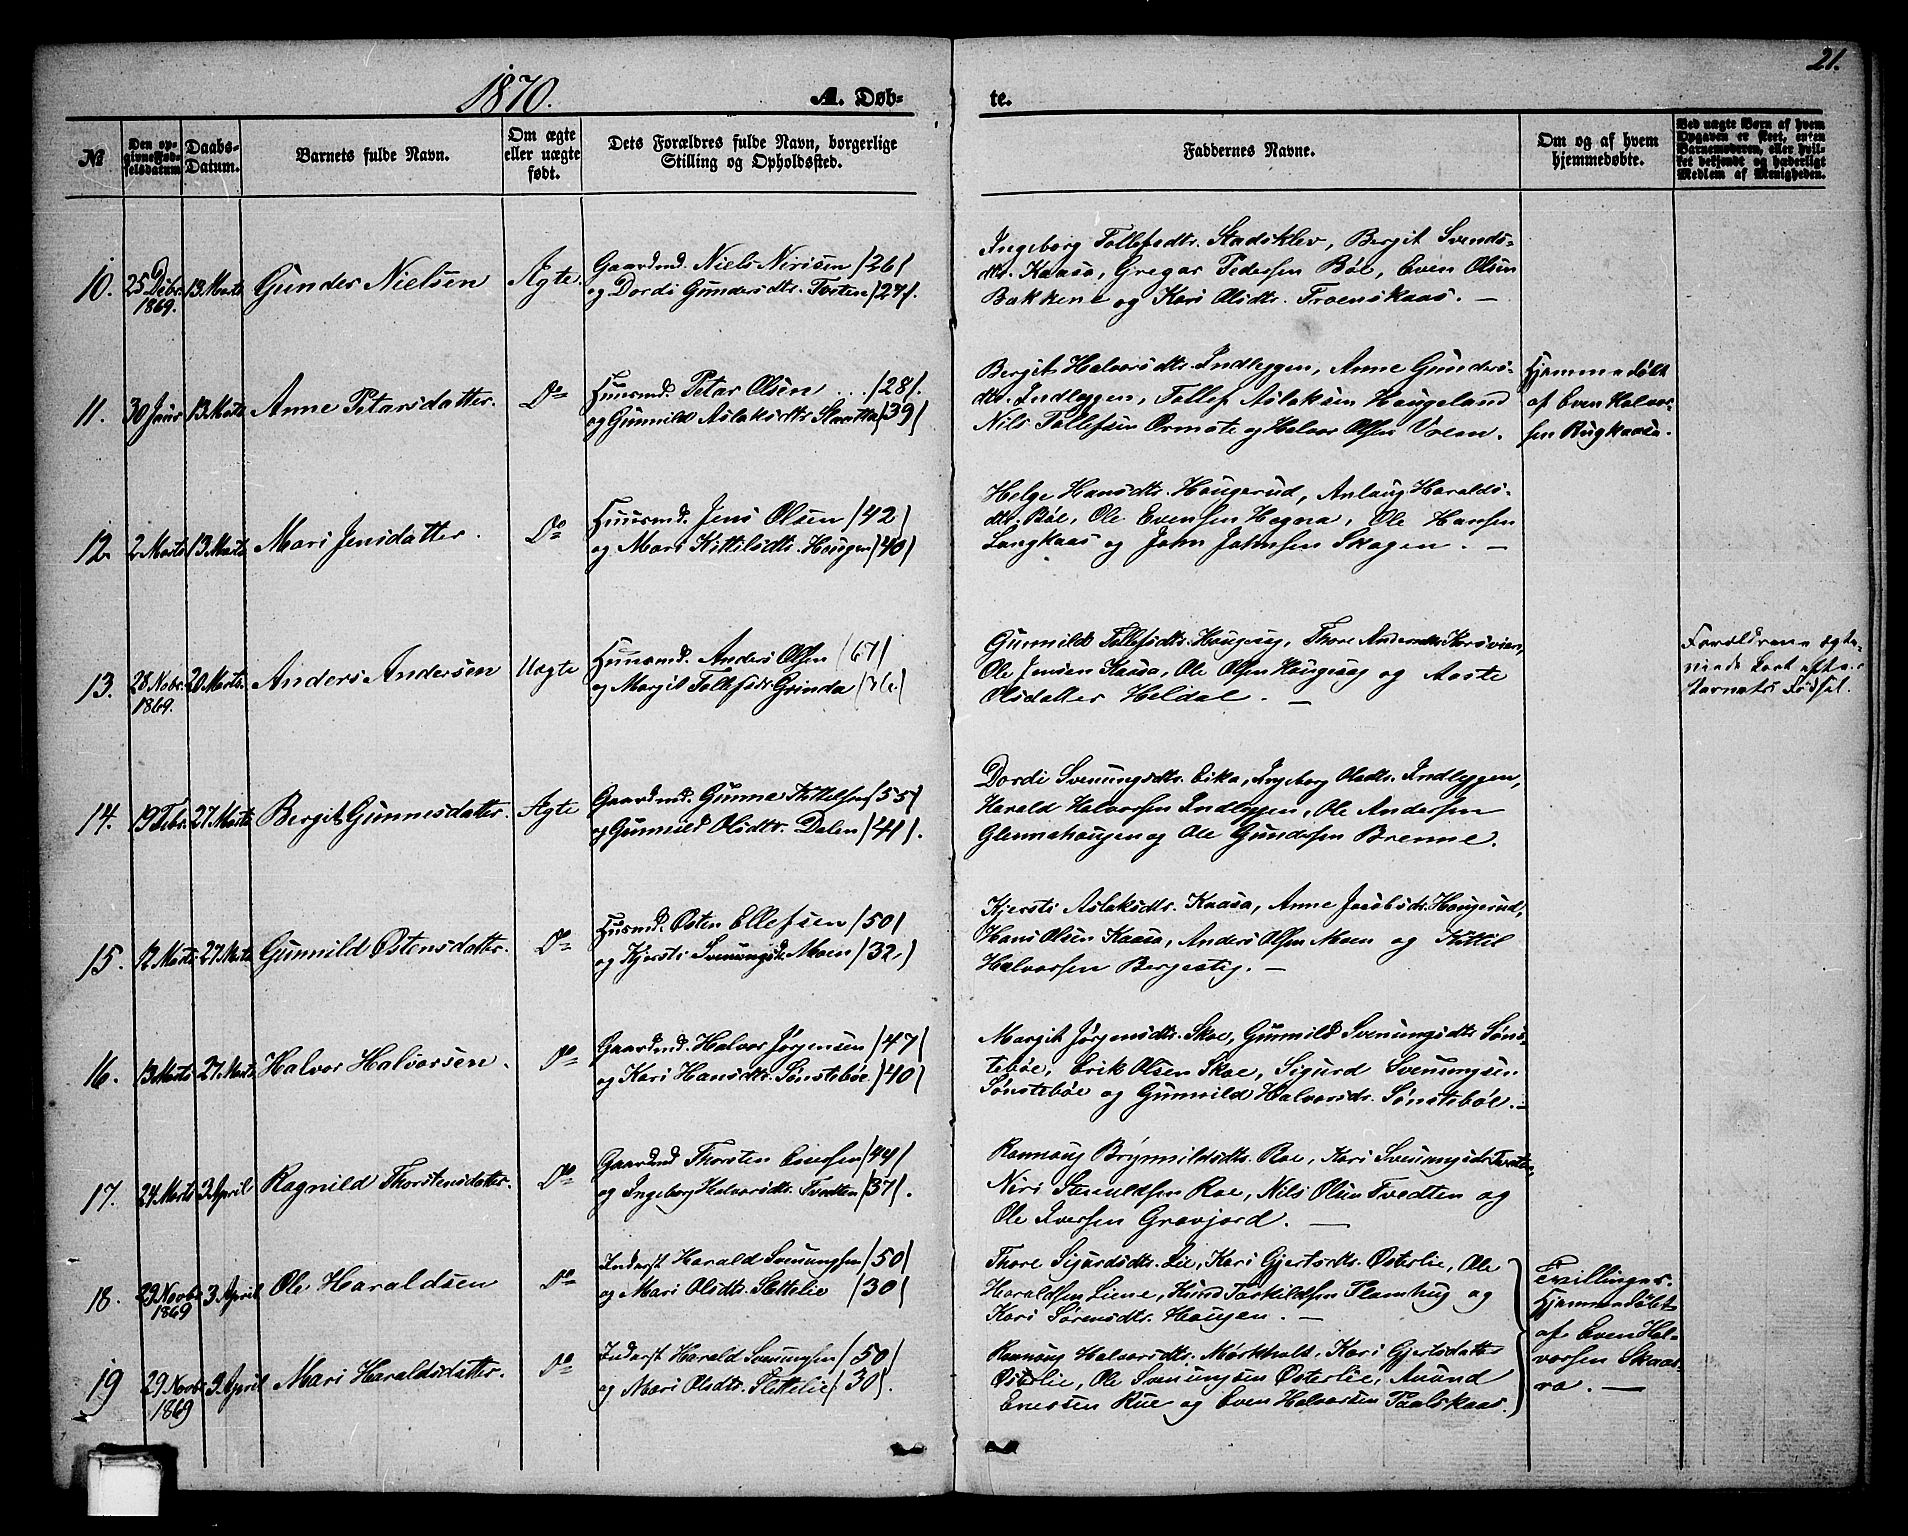 21.
1870.
A. Døb-
te.
№
Den op-
givne Fød-
selsdatum
Daabs-
Datum.
Barnets fulde Navn.
Om ægte
eller uægte
født.
Dets Forældres fulde Navn, borgerlige
Stilling og Opholdssted.
Faddernes Navne.
Om og af hvem
hjemmedøbte.
Ved uægte Børn af hvem
Opgaven er skeet, enten
Barnemoderen, eller hvil-
ket bekjendt og hæderligt
Medlem af Menigheden.
10. 25 Dcbr. 1869. 13 Marts Gunder Nielsen Ægte.
Gaardmd. Niels Nirisen /26/
og Dordi Gundersdtr. Tvsten /27/.
Ingeborg Tollefsdtr. Stadsklev, Bergit Svends-
dtr. Kaasa, Gregar Pedersen Bøe, Even Olsen
Bakkene og Kari Olsdtr. Troenskaas. —
11. 30 Janr 13 Marts Anne Petersdatter. Do
Huusmd. Peter Olsen . . . /28/.
og Gunnild Aslaksdtr. /39/
Bergit Halvorsdtr. Indlæggen, Anne Gunders-
dtr. Indlæggen, Tollef Aslaksen Haugeland
Nils Tollefsen Ormote og Halvor Olsen Vreim.
Hjemmedøbt
af Even Halvor-
sen Rugkaasa.
12. 2 Marts 13 Marts Mari Jensdatter. Do
Huusmd. Jens Olsen /42/
og Mari Kittilsdtr. Haugen /40/
Helge Hansdtr. Haugerud, Anlaug Haralds-
dtr. Bøe, Ole Evensen Hogna, Ole Hansen
Langkaas og John Johnsen Skogen. —
13. 28 Nobr. 1869. 20 Marts. Anders Andersen Uægte
Huusmd. Anders Olsen /67/
og Margit Tollefsdr. Grinda /36/
Gunnild Tollefsdtr. Haugsag, Thore Andersdtr. Korsvien,
Ole Jensen Kaasa, Ole Olsen Haugesag og Aaste
Olsdatter Heldal. —
Forældrene ægte-
viede kort efter
Barnets Fødsel.
14. 19 Febr. 27 Marts Bergit Gunnesdatter. Ægte
Gaardmd. Gunne Kittelsen /55/
og Gunnild Olsdtr. Dalen /41/.
Dordi Svenungsdtr. Eika, Ingeborg Olsdtr. Indlæggen,
Harald Halvorsen Indlæggen, Ole Andersen
Glennehaugen og Ole Gundersen Brenne.
15. 12 Marts 27 Marts Gunnild Østensdatter. Do
Husmd. Østen Ellefsen /50/
og Kjersti Svenungsd. Moen /32/
Kjersti Aslaksdtr. Kaasa, Anne Jacobsdr. Haugerud,
Hans Olsen Kaasa, Anders Olsen Moen og Kittil
Halvorsen Bergestig. —
16. 13 Marts 27 Marts. Halvor Halvorsen. Do
Gaardmd. Halvor Jørgensen /47/
og Kari Hansdtr. Sønstebøe /40/
Margit Jørgensdtr. Skoe, Gunnild Svenungsdtr. Søns-
tebøe, Erik Olsen Skoe, Sigurd Svenungsen
Sønstebøe og Gunnild Halvorsdr. Sønstebøe. —
17. 24 Marts 3 April Ragnild Thorstensdatter. Do
Gaardmd Thorsten Evensen /44/
og Ingeborg Halvorsdtr. Tvedten /37/.
Rannoug Brynnildsdtr. Roe, Kari Svenungsdr. Tvedten,
Niri Roe, Nils Olsen Tvedten og
Ole Iversen Gravjord. —
18. 29 Novbr 1869 3 April Ole Haraldsen Do
Inderst Harald Svenungsen /50/
og Mari Olsdtr. Slettelie /30/
Thore Sigurdsdtr. Lie, Kari Gjertsdtr. Østerlie, Ole
Haraldsen Liene, Knud Torkildsen Flomhug og
Kari Sørensdtr. Haugen. —
Tvillinger.
Hjemmedøbt
af Even Hal-
vorsen Skaas-
ra. —
19 29 Novbr 1869 3 April Mari Haraldsdatter. Do
Inderst Harald Svenungsen /50/
og Mari Olsdtr. Slettelie /30/.
Rannoug Halvorsdtr. Mørkholt, Kari Gjertsdatter
Østerlie, Ole Svenungsen Østerlie, Anund
Enersen Rue og Even Halvorsen Taalskaas.